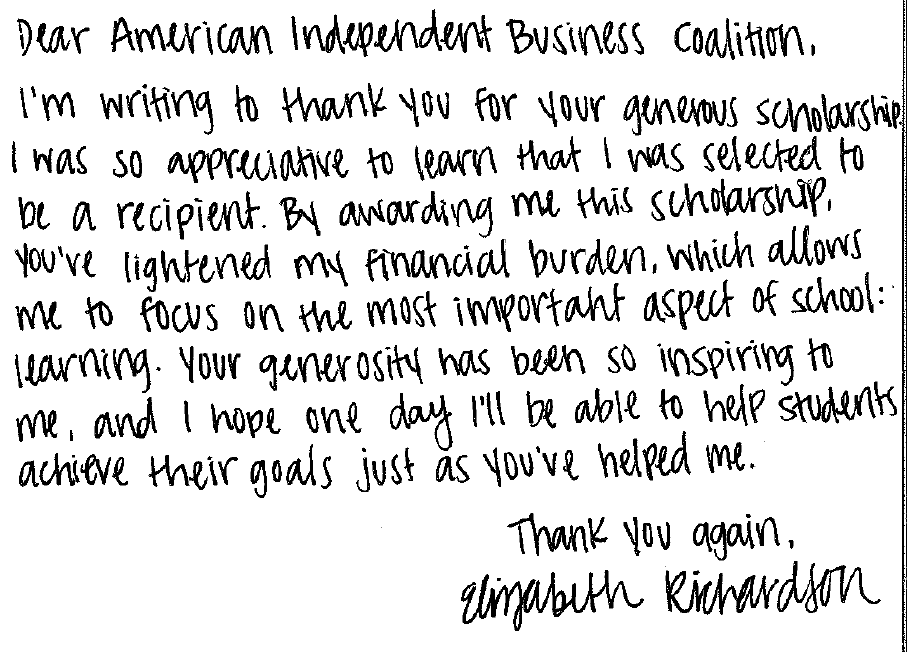 Dear American Independent Business Coalition,
I'm writing to thank you for your generous scholarship.
I was so appreciative to learn that I was selected to
be a recipient. By awarding me this scholarship,
you've lightened my financial burden, which allows
me to focus on the most important aspect of school:
learning. Your generosity has been so inspiring to
me, and I hope one day I'll be able to help students
achieve their goals just as you've helped me.
Thank you again,
Elizabeth Richardson